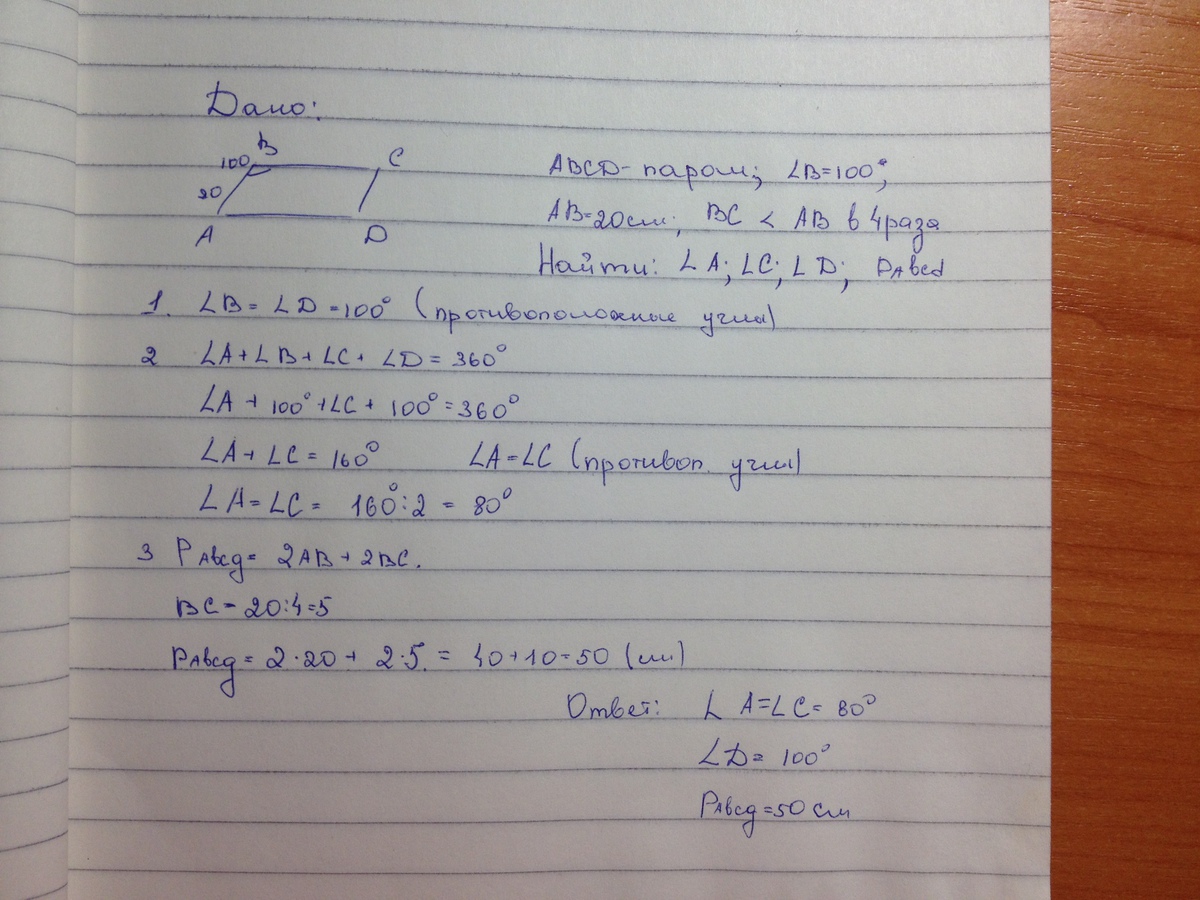 Дано:
B
100
C
20
A
D
ABCD - парал; ∠B=100°;
AB=20см; BC < AB в 4 раза
Найти: ∠A; ∠C; ∠D; PABCD
1. ∠B = ∠D = 100° (противоположные углы)
2 ∠A + ∠B + ∠C + ∠D = 360°
∠A + 100° + ∠C + 100° = 360°
∠A + ∠C = 160° ∠A = ∠C (противоп. углы)
∠A = ∠C = 160° : 2 = 80°
3 PABCД = 2AB + 2BC.
BC = 20:4=5
PABCД = 2·20 + 2·5. = 40+10=50 (см)
Ответ: ∠A=∠C= 80°
∠D= 100°
PABCД =50 см